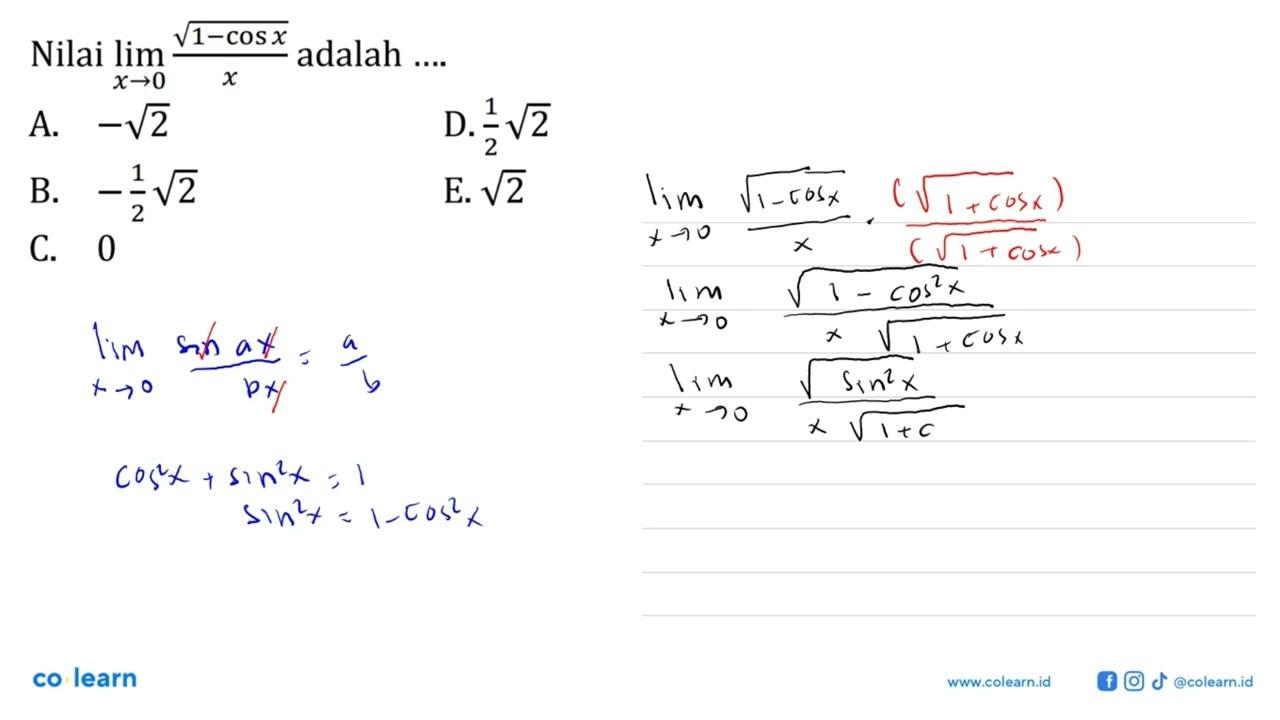 Nilai lim x→0 √(1−cos x)/x adalah ....
A. −√2
B. −1/2 √2
C. 0
D. 1/2 √2
E. √2
lim x→0 sin ax / bx = a/b
cos²x + sin²x = 1
sin²x = 1 − cos²x
lim x→0 √(1−cos x)/x . (√(1+cos x))/(√(1+cos x))
lim x→0 √(1 − cos²x)/(x √(1+cos x))
lim x→0 √(sin²x)/(x √(1+c
co learn
www.colearn.id
@colearn.id